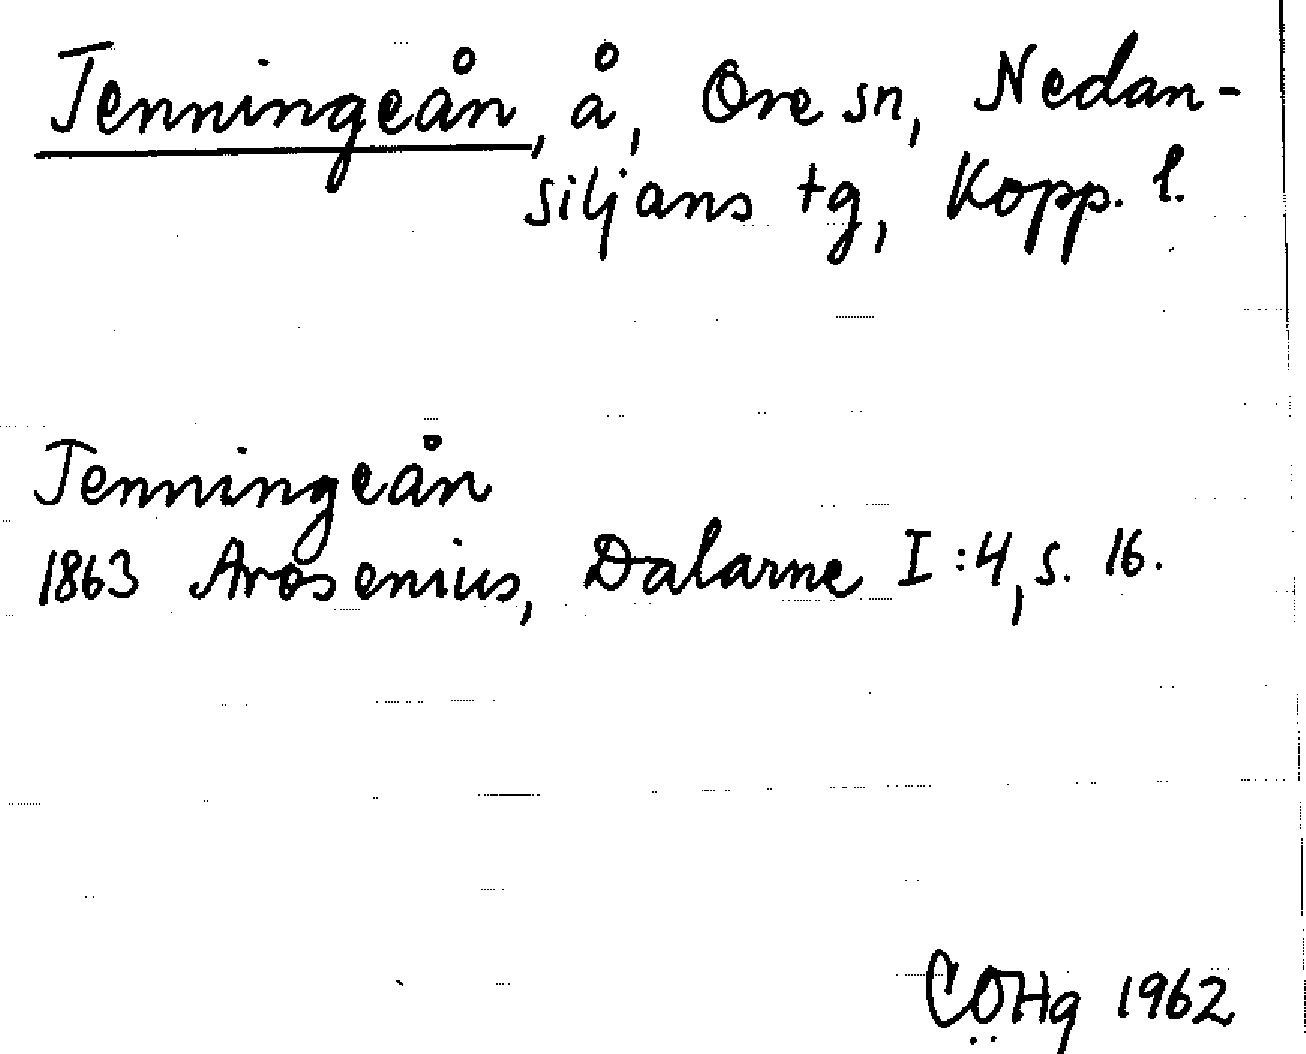 Jenningeån, å, Ore sn, Nedan-
siljans tg, Kopp. l.
Jenningeån
1863 Arosenius, Dalarne I:4, s. 16.
COHg 1962